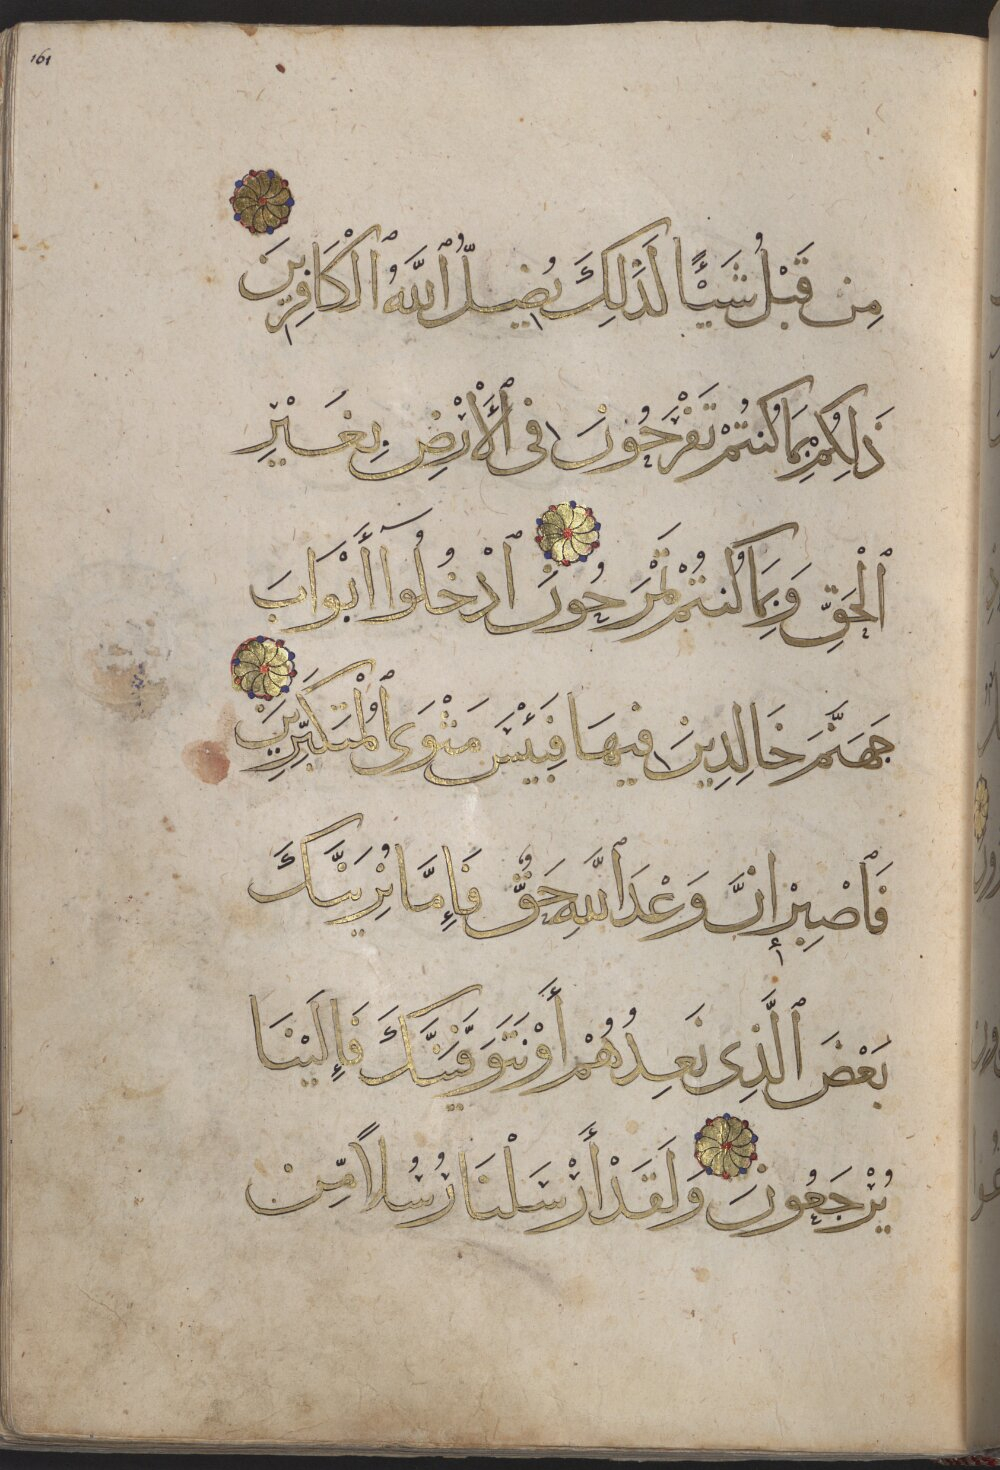 161
مِن قَبْلُ شَيْـًٔا كَذَٰلِكَ يُضِلُّ ٱللَّهُ ٱلْكَافِرِينَ
ذَٰلِكُمْ بِمَا كُنتُمْ تَفْرَحُونَ فِى ٱلْأَرْضِ بِغَيْرِ
ٱلْحَقِّ وَبِمَا كُنتُمْ تَمْرَحُونَ ٱدْخُلُوٓا أَبْوَابَ
جَهَنَّمَ خَالِدِينَ فِيهَا فَبِئْسَ مَثْوَى ٱلْمُتَكَبِّرِينَ
فَٱصْبِرْ إِنَّ وَعْدَ ٱللَّهِ حَقٌّ فَإِمَّا نُرِيَنَّكَ
بَعْضَ ٱلَّذِى نَعِدُهُمْ أَوْ نَتَوَفَّيَنَّكَ فَإِلَيْنَا
يُرْجَعُونَ وَلَقَدْ أَرْسَلْنَا رُسُلًا مِّن